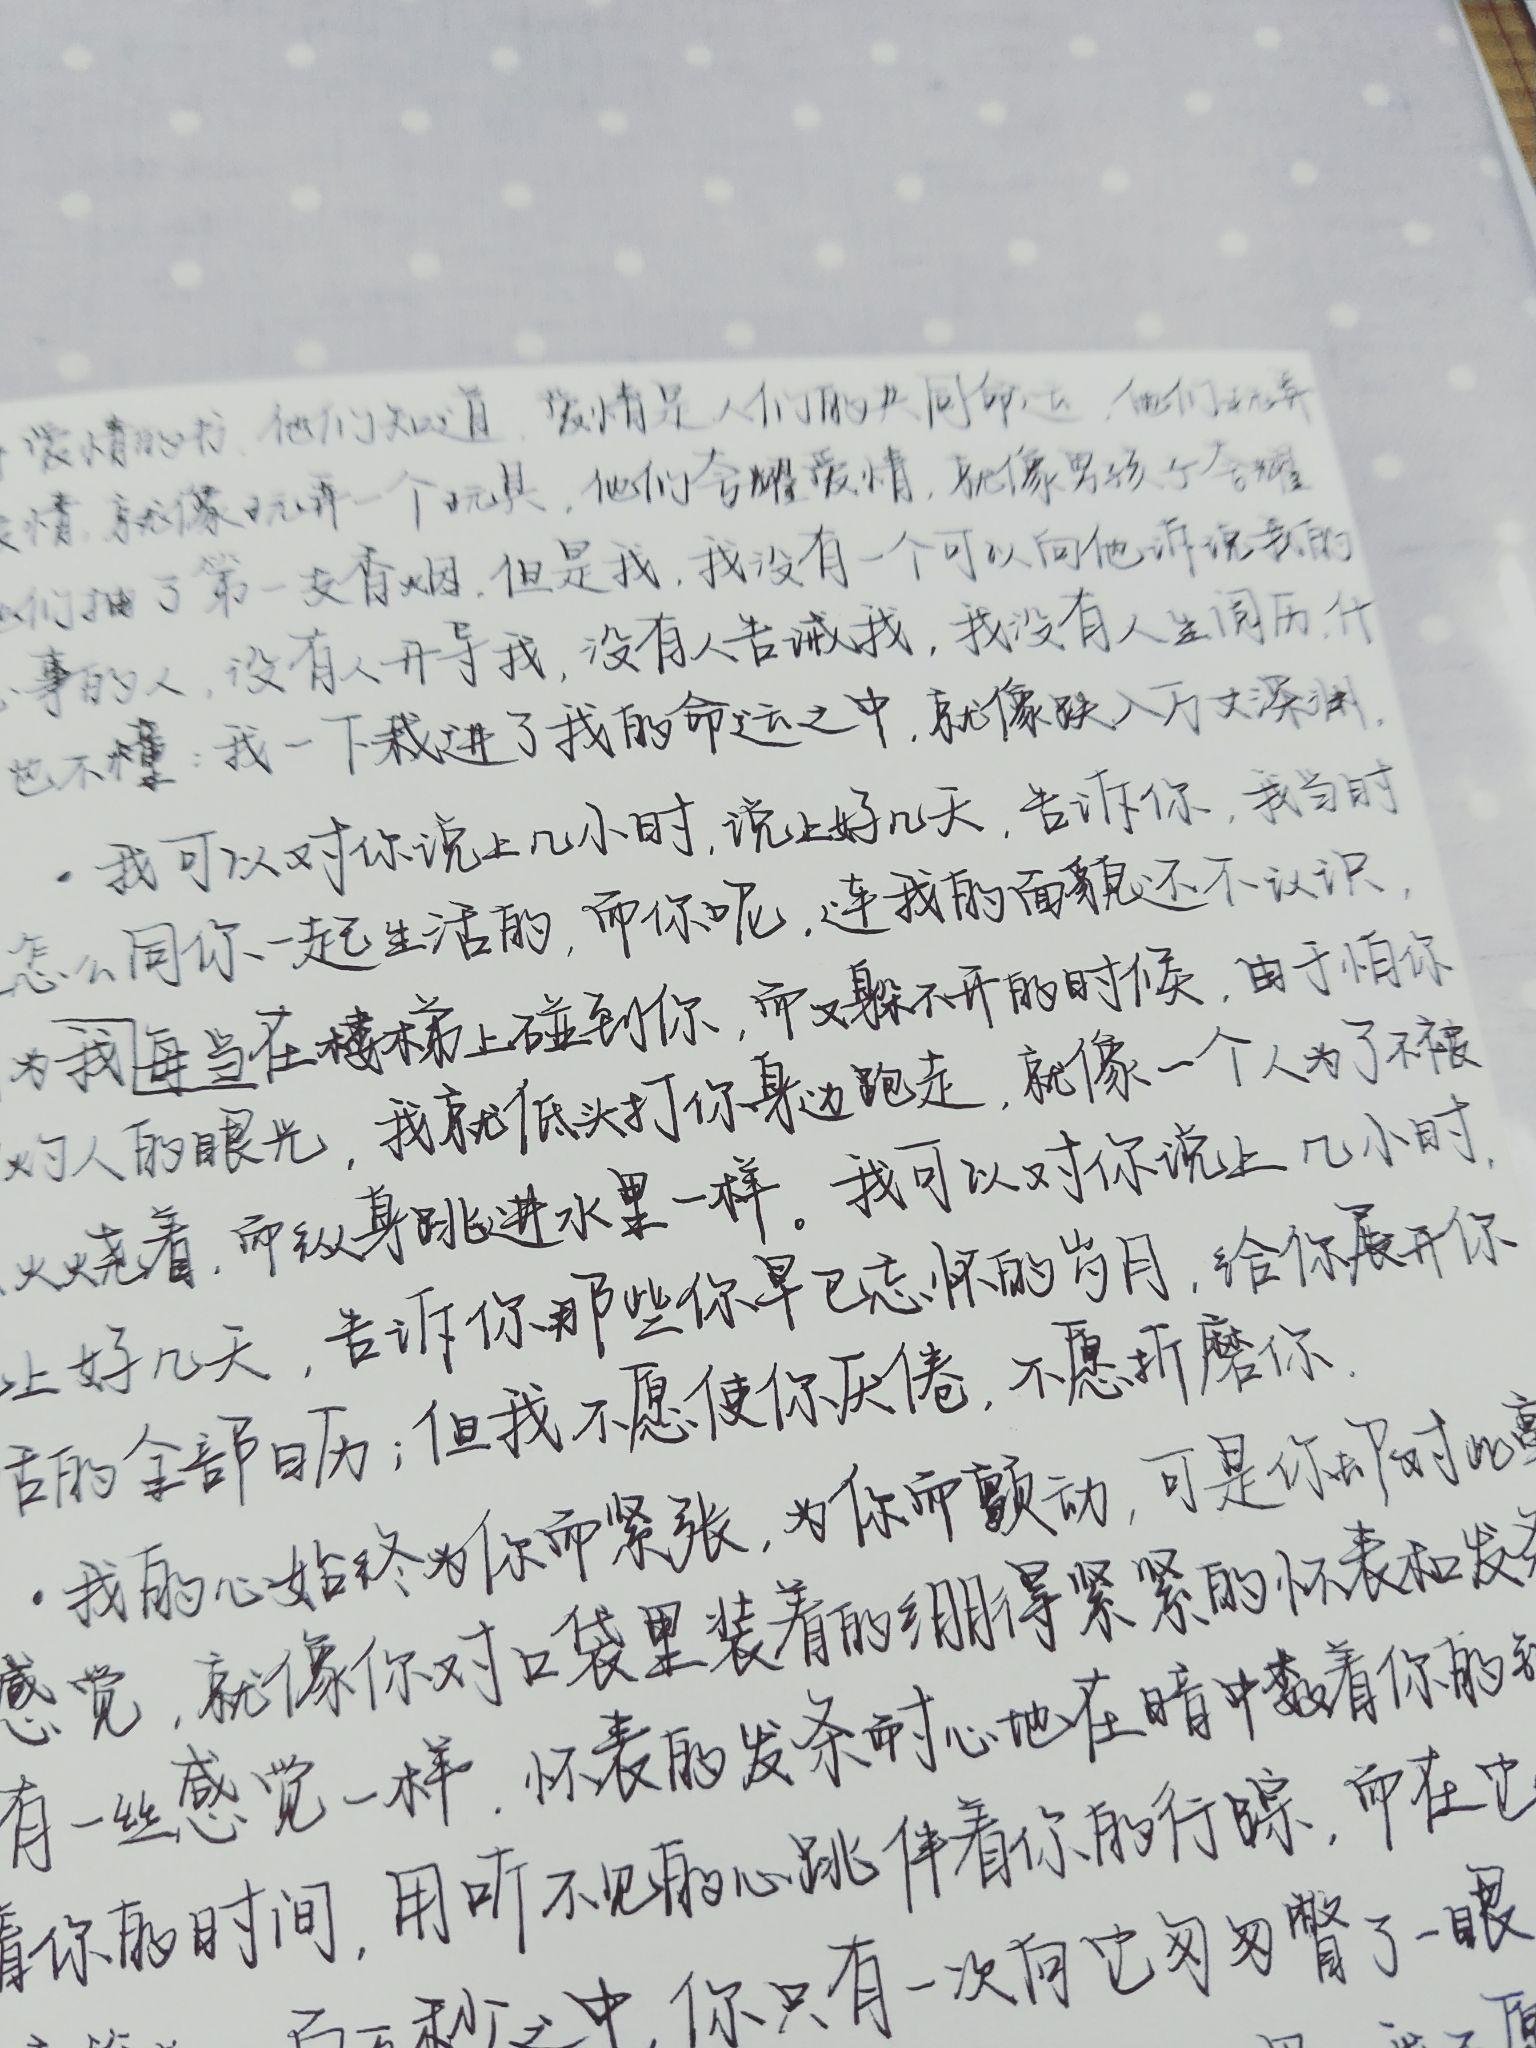 爱情的书、他们知道，爱情是人们的共同命运，他们玩弄
情，就像玩弄一个玩具，他们夸耀爱情，就像男孩子夸耀
他们抽了第一支香烟，但是我，我没有一个可以向他诉说我的
心事的人，没有人开导我，没有人告诫我，我没有人生阅历，什
也不懂：我一下栽进了我的命运之中，就像跌入万丈深渊，
·我可以对你说上几小时，说上好几天，告诉你，我当时
怎么同你一起生活的，而你呢，连我的面貌还不认识，
为我每当在楼梯上碰到你，而又躲不开的时候，由于怕你
灼人的眼光，我就低头打你身边跑走，就像一个人为了不被
火烧着，而纵身跳进水里一样。我可以对你说上几小时，
上好几天，告诉你那些你早已忘怀的岁月，给你展开你
活的全部日历；但我不愿使你厌倦，不愿折磨你．
·我的心始终为你而紧张，为你而颤动，可是你却对此毫
感觉，就像你对口袋里装着的绷得紧紧的怀表和发条
有一丝感觉一样．怀表的发条耐心地在暗中数着你的
着你的时间，用听不见的心跳伴着你的行踪，而在它
百万秒之中，你只有一次向它匆匆瞥了一眼